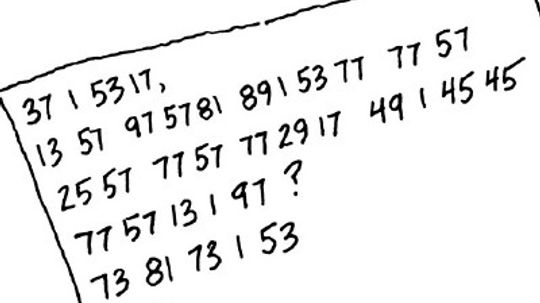 37 1 53 17,
13 57 97 57 81 89 1 53 77 77 57
25 57 77 57 77 29 17 49 1 45 45
77 57 13 1 97 ?
73 81 73 1 53